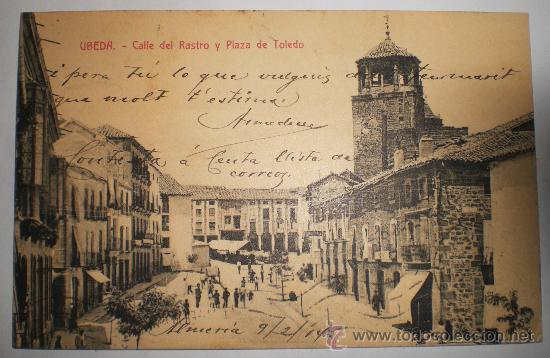 UBEDA. - Calle del Rastro y Plaza de Toledo
i pera tú lo que vulguis de ton marit
que molt t'estima.
Amadeu
Contesta á Lenta Llista de
correos.
Almería 9/2/19
todocoleccion.net